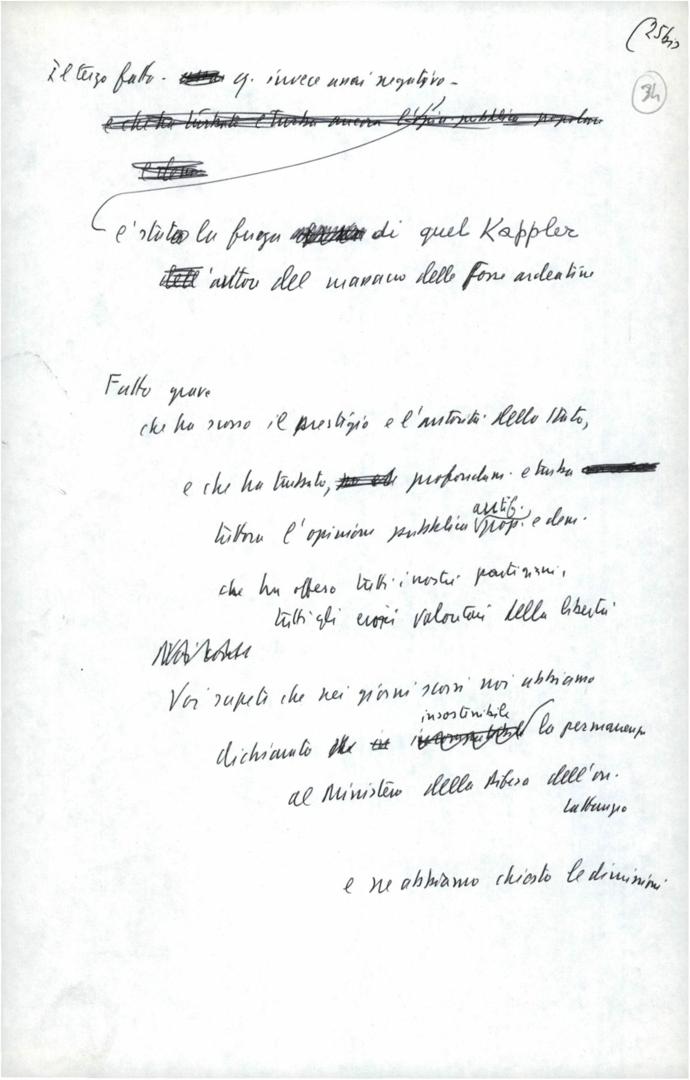 (25bis
34
Il terzo fatto - q. invece assai negativo -
e che ha turbato e turba ancora l'opin. pubblica popolare
e dem.
è stato la fuga di quel Kappler
dell'autore del massacro delle Fosse ardeatine
Fatto grave
che ha scosso il prestigio e l'autorità dello Stato,
e che ha turbato, profondam. e turba
tuttora l'opinione pubblica pop. e dem.
antif.
che ha offeso tutti i nostri partigiani,
tutti gli eroici volontari della libertà
Voi sapete che nei giorni scorsi noi abbiamo
insostenibile
dichiarato che in la permanenza
al Ministero della Difesa dell'on.
Lattanzio
e ne abbiamo chiesto le dimissioni